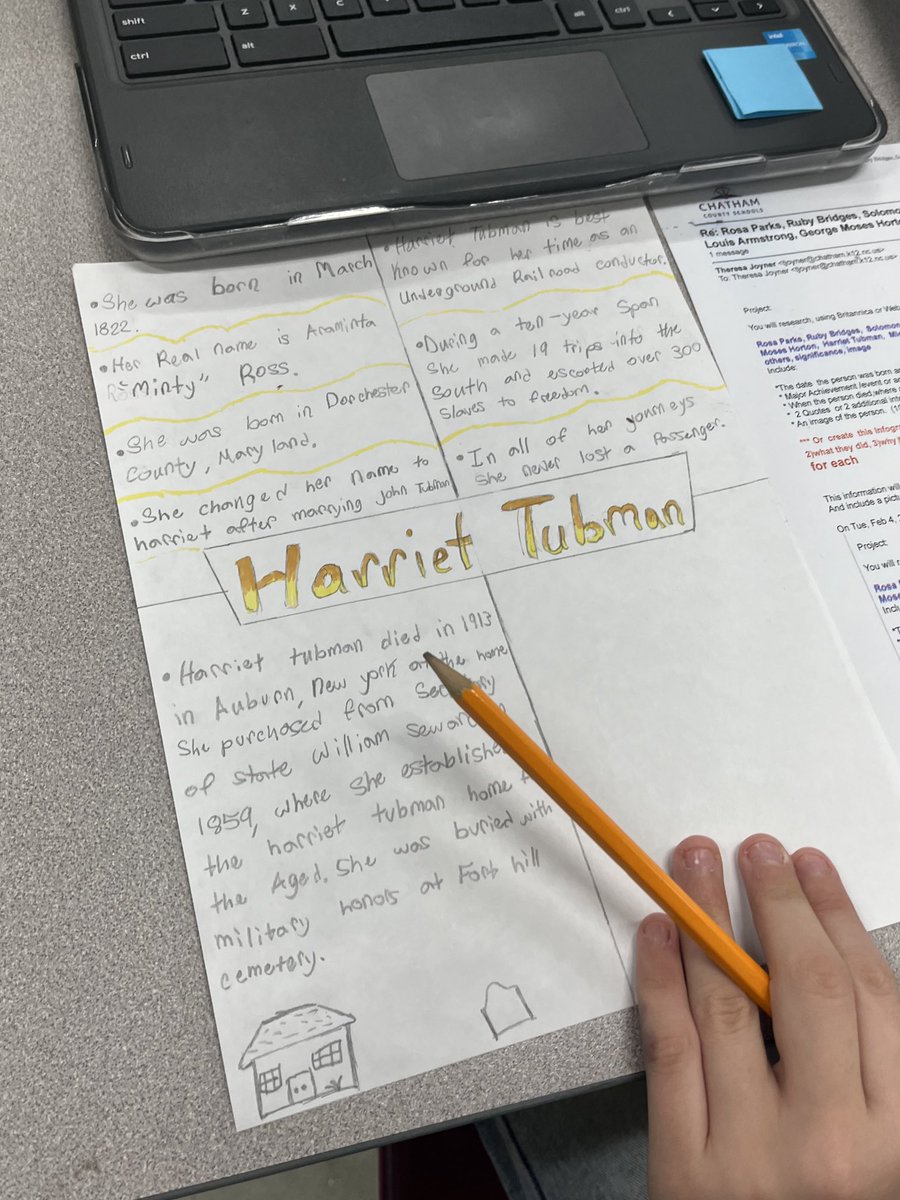 shift
Z
X
C
alt
ctrl
ctrl
alt
intel
• She was born in March
1822.
• Her Real name is Araminta
"Minty" Ross.
• She was born in Dorchester
County, Maryland.
• She changed her name to
harriet after marrying john Tubman
• Harriet Tubman is best
known for her time as an
Underground Railroad conductor.
• During a ten-year span
She made 19 trips into the
South and escorted over 300
slaves to freedom.
• In all of her journeys
She never lost a Passenger.
Harriet Tubman
• Harriet tubman died in 1913
in Auburn, New york at the home
She purchased from Secretary
of state William Seward in
1859, where She established
the harriet tubman home
the Aged. She was buried with
military honors at Fort hill
cemetery.
CHATHAM
COUNTY SCHOOLS
Re: Rosa Parks, Ruby Bridges, Solomo
Louis Armstrong, George Moses Hort
1 message
Theresa Joyner <tjoyner@chatham.k12.nc.us>
To: Theresa Joyner <tjoyner@chatham.k12.nc.us>
Project:
You will research, using Britannica or Web
Rosa Parks, Ruby Bridges, Solomon
Moses Horton, Harriet Tubman,
others, significance, image
Include:
*The date the person was born an
* Major Achievement (event or an
* When the person died, where
* 2 Quotes or 2 additional inte
* An image of the person. (10
*** Or create this Infogr
2)what they did, 3)why
for each
This information will
And include a pictu
On Tue, Feb 4,
Project:
You will r
Rosa
Mose
Inclu